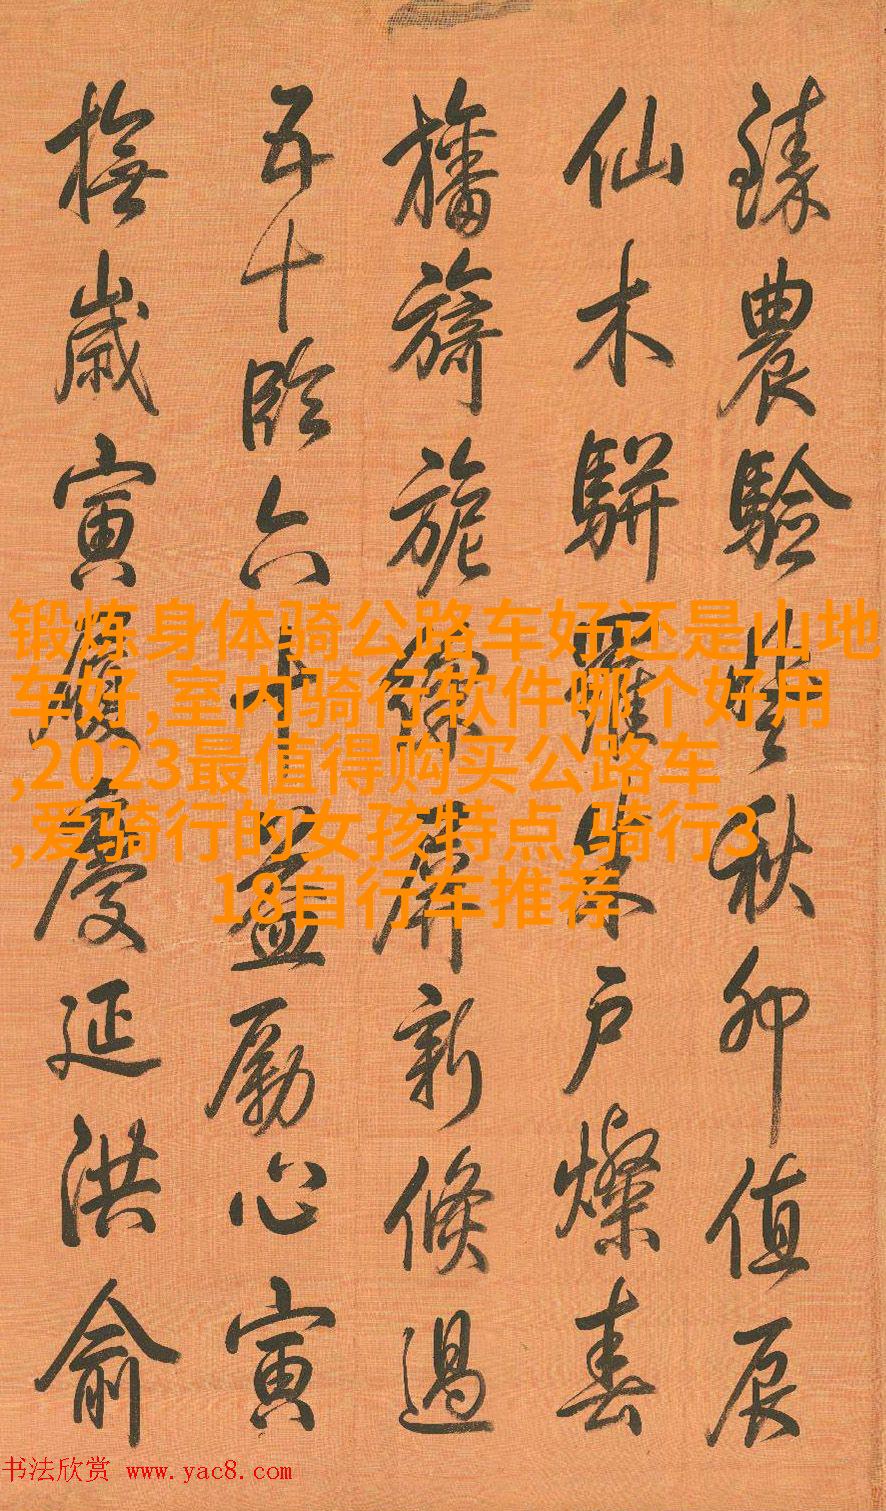 臻農驗秋卯值辰
仙木駢羅朱戶燦春
旛旖旎屏新倏過
五十臨六十益勵心寅
撫歲寅慶延洪俞
锻炼身体骑公路车好还是山地
车好,室内骑行软件哪个好用
,2023最值得购买公路车
,爱骑行的女孩特点,骑行3
18自行车推荐
书法欣赏 www.yac8.com